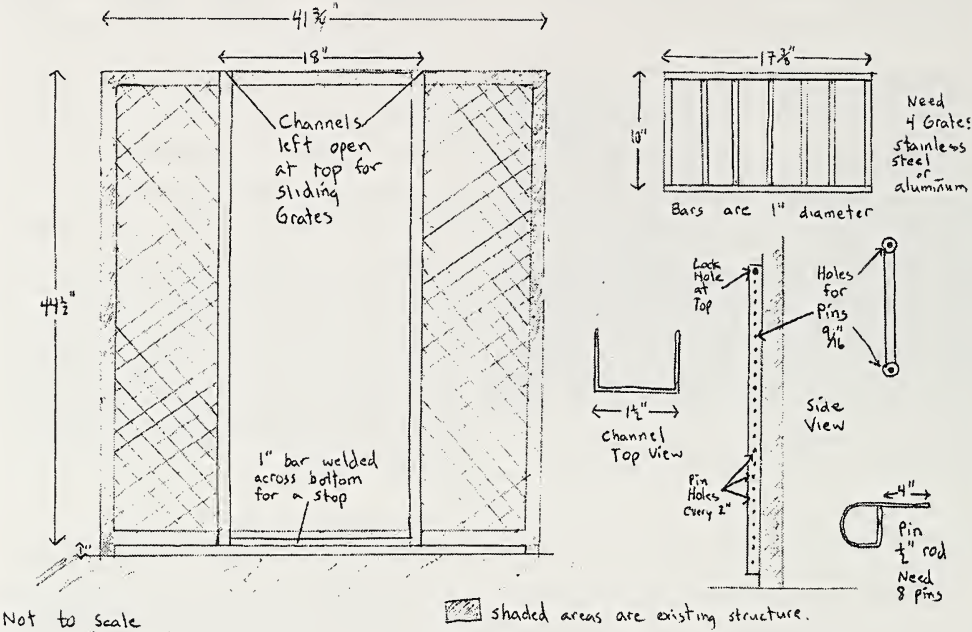 41 3/4"
18"
Channels
left open
at top for
sliding
Grates
44 1/2"
1" bar welded
across bottom
for a stop
1"
Not to scale
17 3/8"
10"
Need
4 Grates
stainless
steel
or
aluminum
Bars are 1" diameter
Lock
Hole
at
Top
Holes
for
Pins
9/16
1 1/2"
Channel
Top View
Side
View
Pin
Holes
Every 2"
4"
Pin
1/2" rod
Need
8 pins
shaded areas are existing structure.